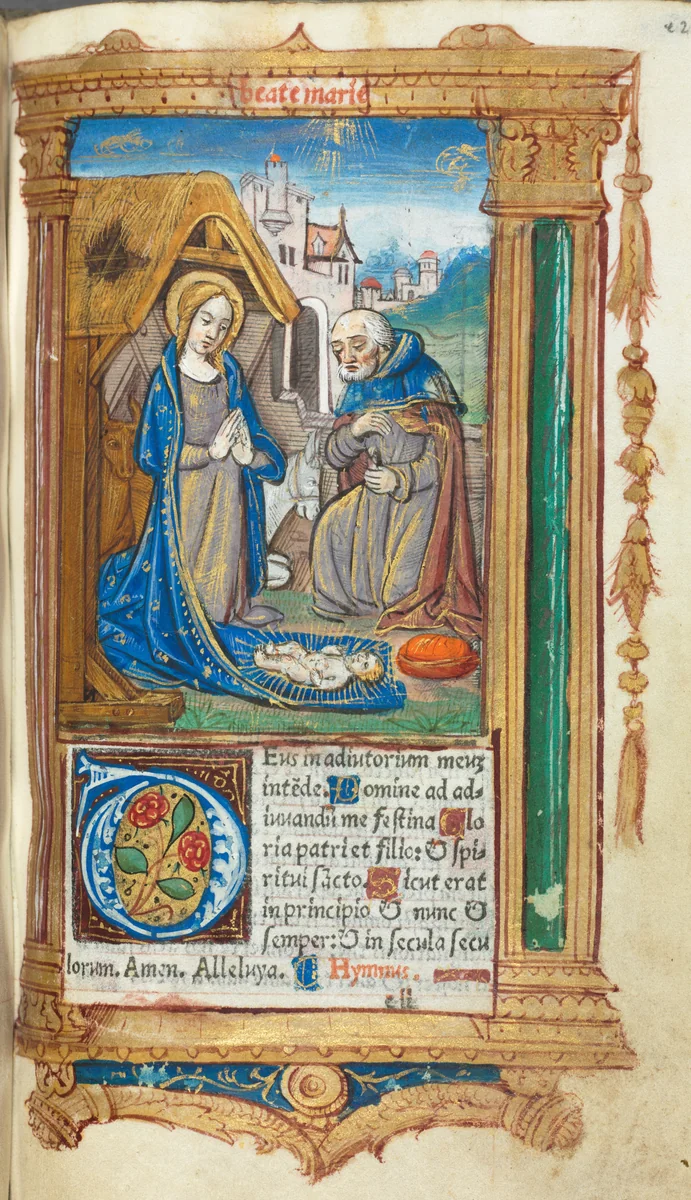 e 2
beate marie
DEus in adiutorium meuʒ
intēde. Domine ad ad-
iuuandū me festina Glo
ria patri et filio: & spi-
ritui sācto. Sicut erat
in principio & nunc &
semper: & in secula secu
lorum. Amen. Alleluya. Hymnus.